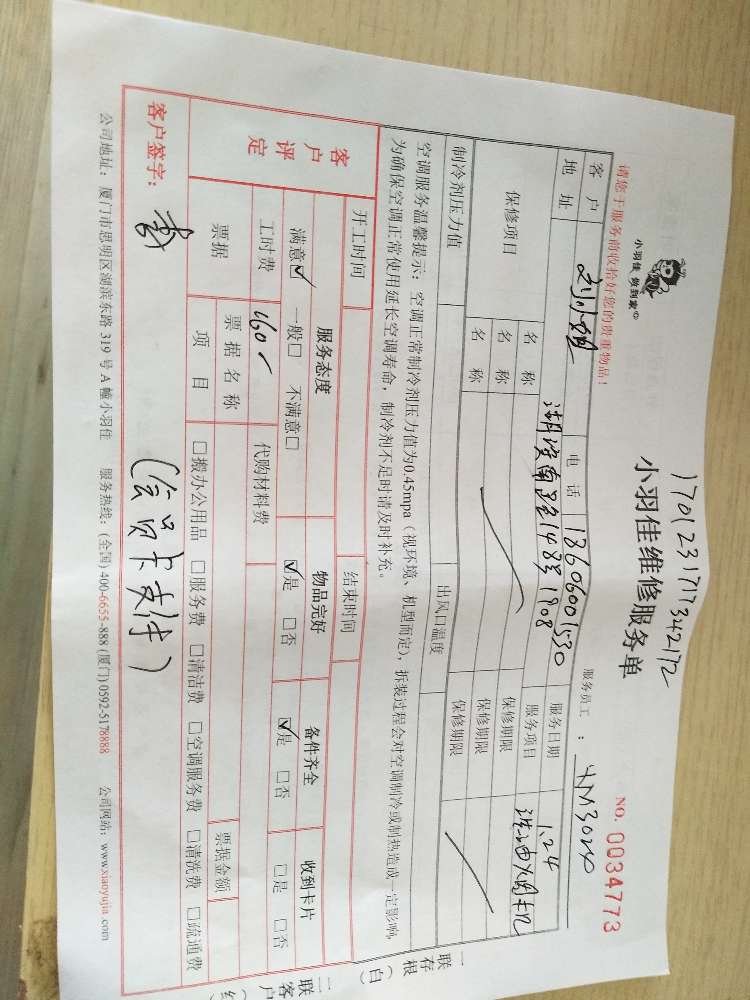 1701231717342172
小羽佳 做到家
小羽佳维修服务单
NO. 0034773
请您于服务前收拾好您的贵重物品!
服务员工: XM30240
客户 刘小姐 电话 13606001530 服务日期 1.24
地址 湖滨南路148号1908 服务项目 洗油烟机
保修项目 名称 保修期限
名称 保修期限
名称 保修期限
制冷剂压力值 出风口温度
空调服务温馨提示:空调正常制冷剂压力值为0.45mpa(视环境、机型而定),拆装过程会对空调制冷或制热造成一定影响,
为确保空调正常使用延长空调寿命,制冷剂不足时请及时补充。
开工时间 结束时间
客户评定 服务态度 物品完好 备件齐全 收到卡片
满意☑ 一般□ 不满意□ ☑是 □否 ☑是 □否 □是 □否
工时费 160 代购材料费
票据 票据名称 票据金额
项目 □搬办公用品 □服务费 □清洁费 □空调服务费 □清洗费 □疏通费
客户签字: (会员卡支付)
公司地址:厦门市思明区湖滨东路319号A幢小羽佳 服务热线:(全国)400-6655-888 (厦门)0592-5178888 公司网站:www.xiaoyujia.com
一联存根(白)
二联客户(红